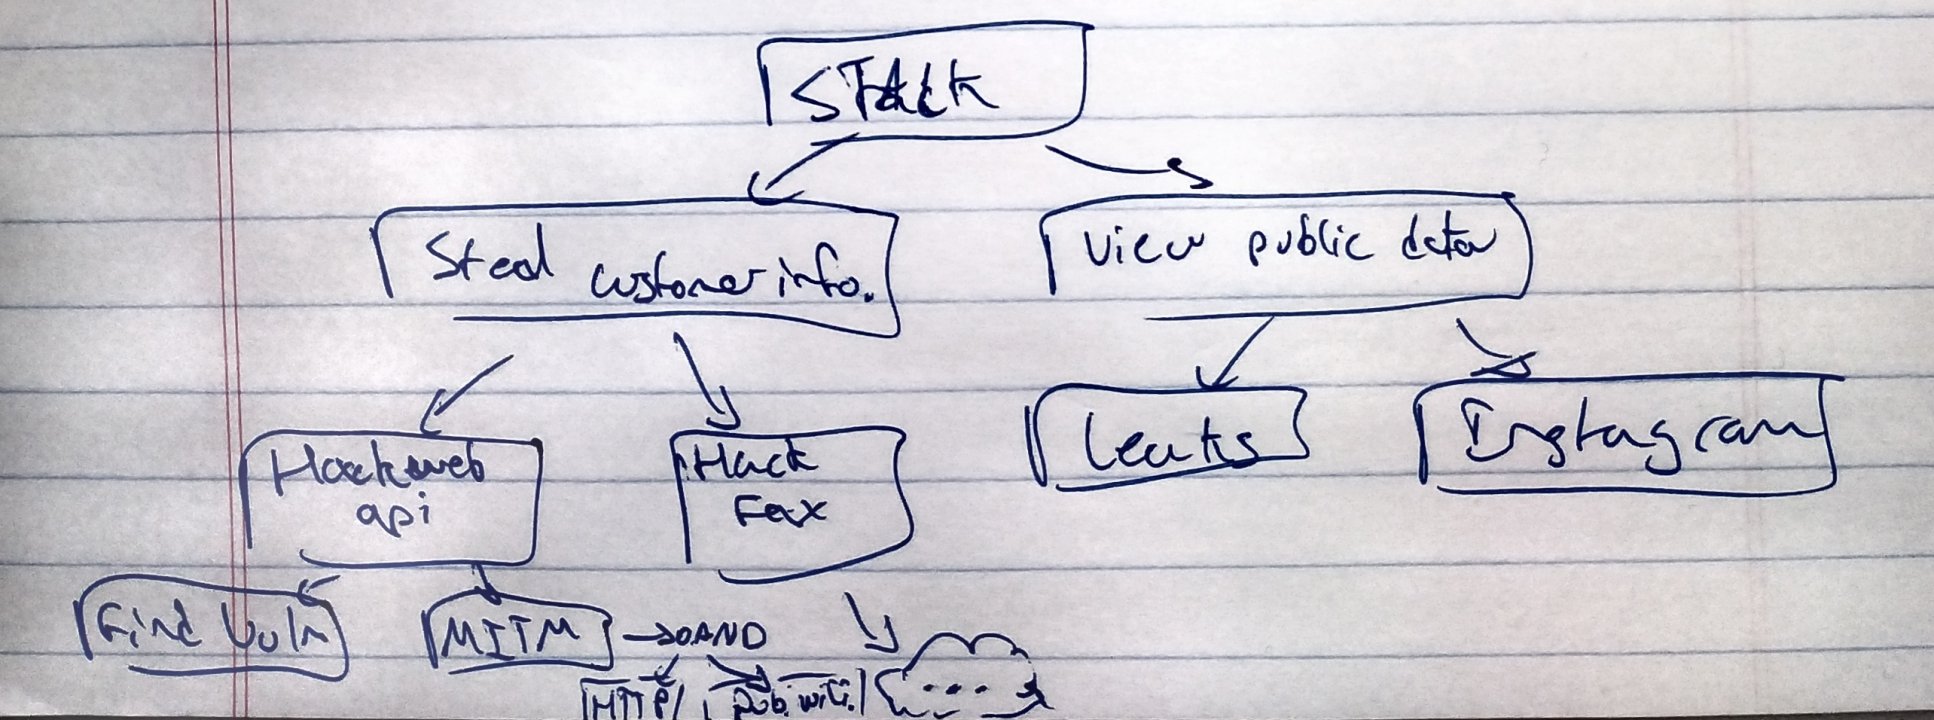 STALK
Steal customer info.
View public data
Hack web
api
Hack
Fax
Leaks
Instagram
Find Vuln
MITM
AND
HTTP
Pub. wifi.
...